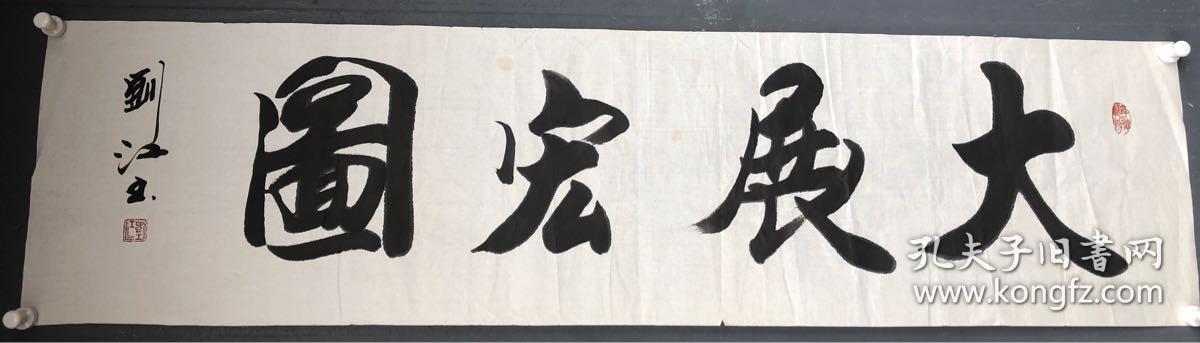 大展宏圖
劉江书
孔夫子旧書网
www.kongfz.com